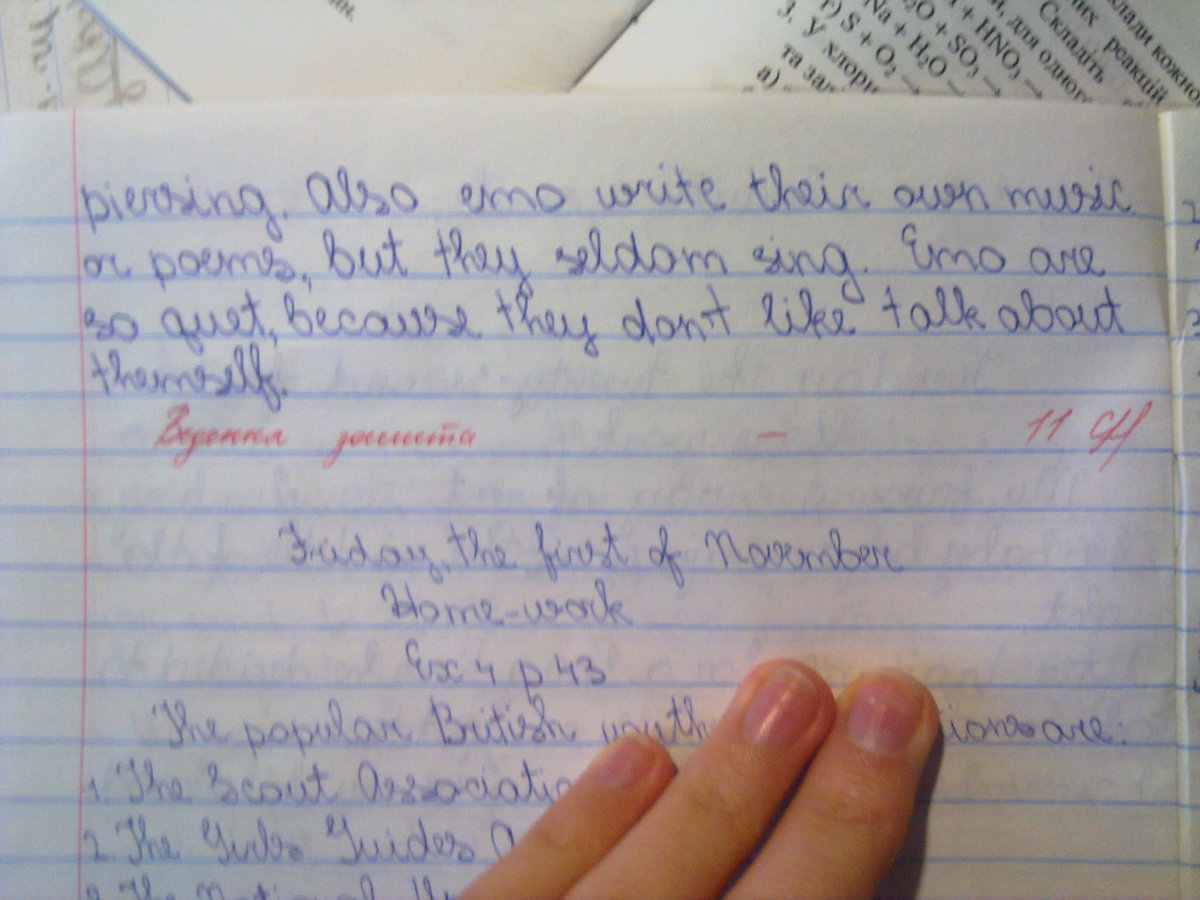 їн.
клади кожно
их реакцій
Складіть
, для одног
+ HNO₃ →
O + SO₃ →
Na + H₂O →
г) S + O₂ →
3. У хлори
та за
а)
piersing. Also emo write their own music
or poems, but they seldom sing. Emo are
so quet, because they don't like talk about
themself.
Ведення зошита – 11
Friday, the first of November
Home-work
Ex 4 p 43
The popular British youth tions are:
1. The Scout Associatio
2. The Girls Guides A
3. The National